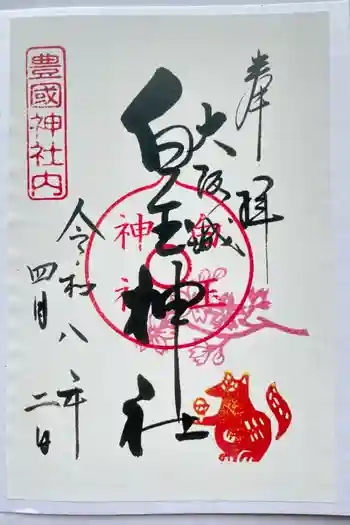 奉拝
大阪城
白玉神社
白玉
神社
豊國神社内
令和八年
四月二日